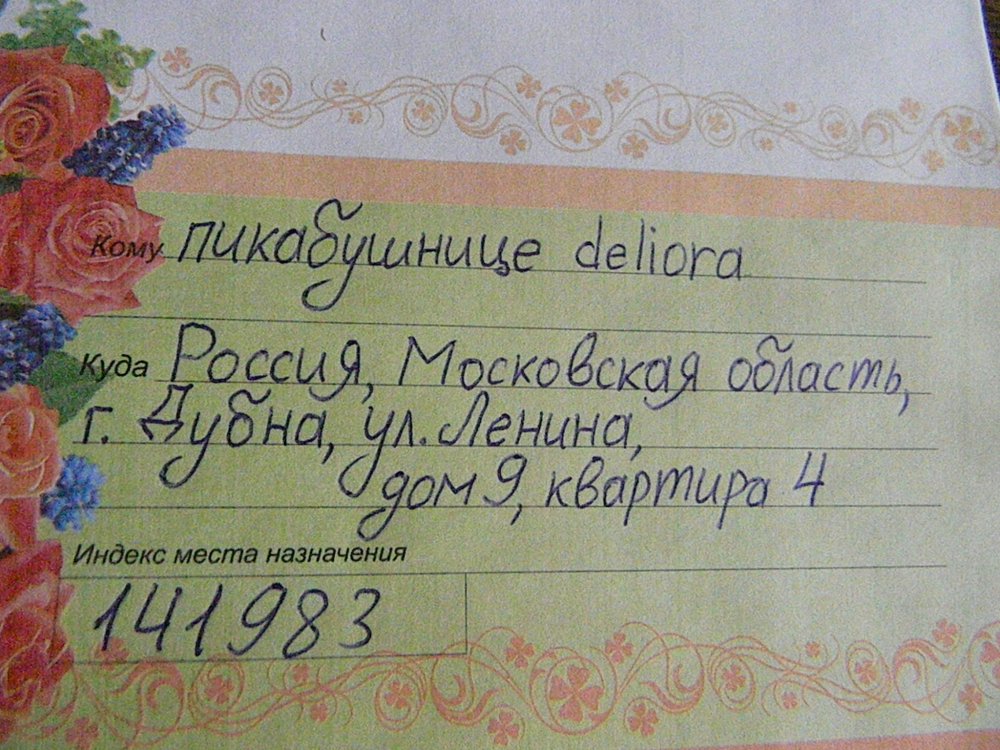 Кому пикабушнице deliora
Куда Россия, Московская область,
г. Дубна, ул. Ленина,
дом 9, квартира 4
Индекс места назначения
141983